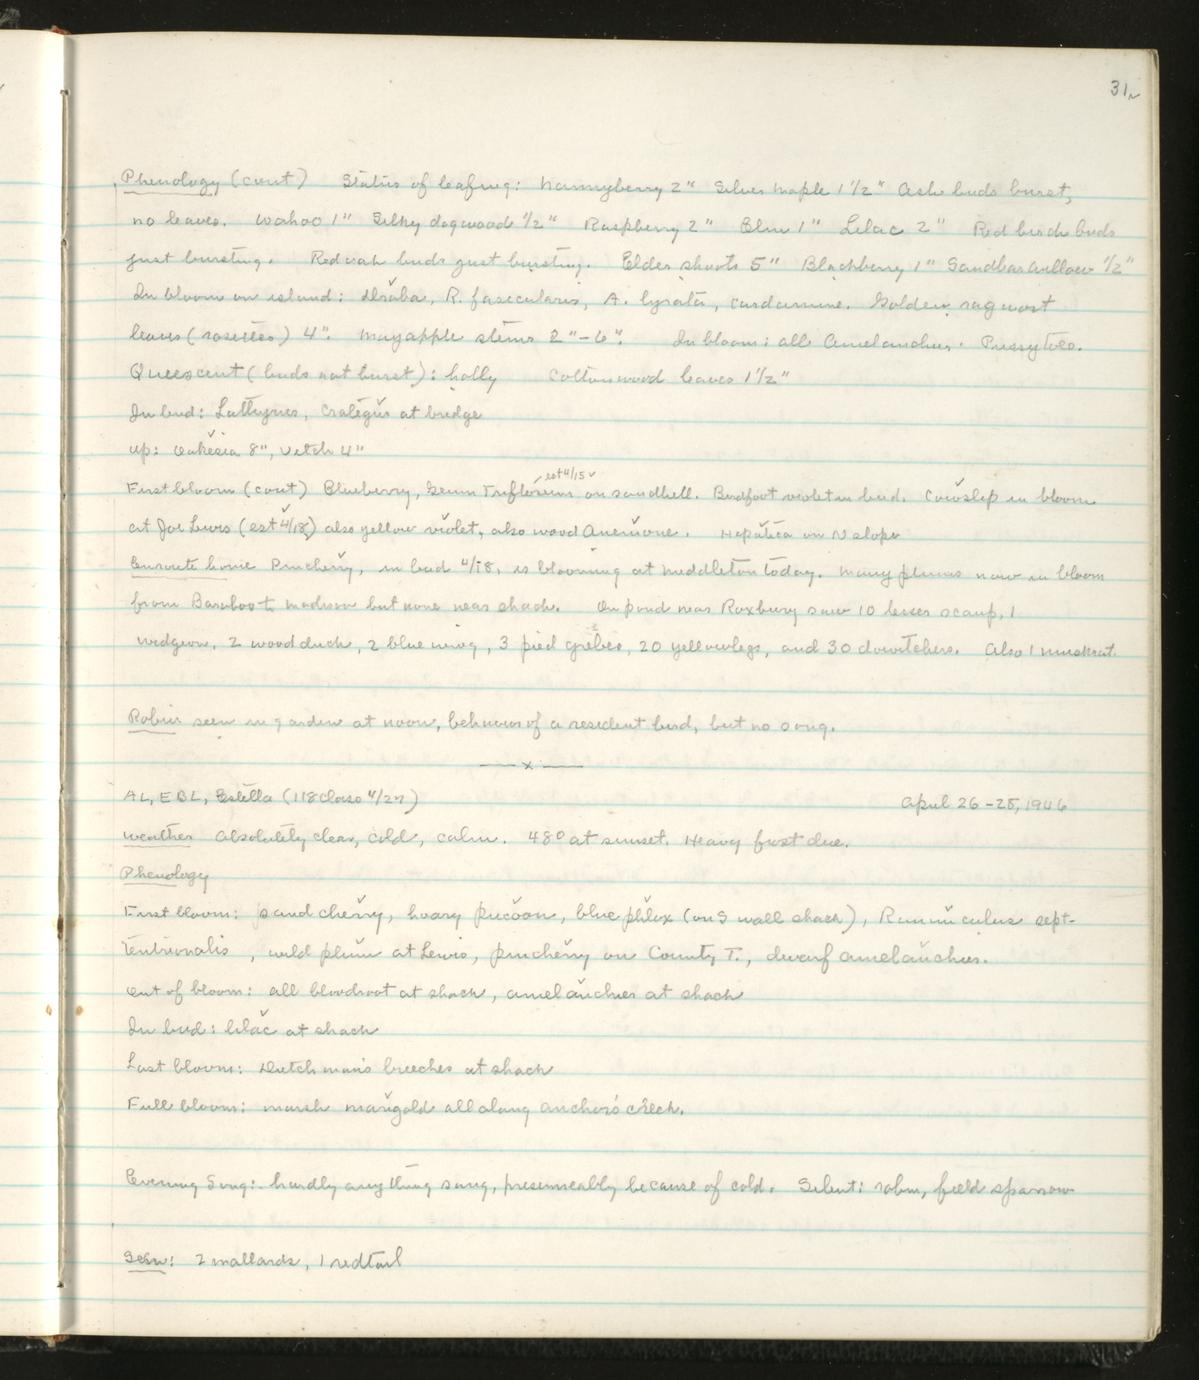 31
Phenology (cont) Status of leafing: Nannyberry 2" Silver maple 1 1/2" Ash buds burst,
no leaves. Wahoo 1" Silky dogwood 1/2" Raspberry 2" Elm 1" Lilac 2" Red birch buds
just bursting. Red oak buds just bursting. Elder shoots 5" Blackberry 1" Sandbar willow 1/2"
In bloom on island: draba, R. fascicularis, A. lyrata, cardamine. Golden ragwort
leaves (rosettes) 4". Mayapple stems 2"-6". In bloom: all Amelanchier. Pussytoes.
Quiescent (buds not burst): holly Cottonwood leaves 1 1/2"
In bud: Lathyrus, Crategus at bridge
up: Oakesia 8", Vetch 4"
est 4/15
First bloom (cont) Blueberry, Geum Triflorum on sandhill. Birdfoot violet in bud. Cowslip in bloom
at Joe Lewis (est 4/18) also yellow violet, also wood Anemone. Hepatica on N slope
Enroute home Pincherry, in bud 4/18, is blooming at Middleton today. Many plums now in bloom
from Baraboo to Madison but none near shack. On pond near Roxbury saw 10 lesser scaup, 1
widgeon, 2 wood duck, 2 blue wing, 3 pied grebes, 20 yellowlegs, and 30 dowitchers. Also 1 muskrat.
Robin seen in garden at noon, behavior of a resident bird, but no song.
—x—
AL, EBL, Estella (118 class 4/27) April 26-28, 1946
Weather Absolutely clear, cold, calm. 48° at sunset. Heavy frost due.
Phenology
First bloom: sand cherry, hoary puccoon, blue phlox (on S wall shack), Ranunculus sept-
tentrionalis, wild plum at Lewis, pincherry on County T., dwarf amelanchier.
Out of bloom: all bloodroot at shack, amelanchier at shack
In bud: lilac at shack
Last bloom: Dutchman's breeches at shack
Full bloom: marsh marigold all along anchor's creek.
Evening Song: hardly anything sang, presumeably because of cold. Silent: robin, field sparrow
Seen: 2 mallards, 1 redtail